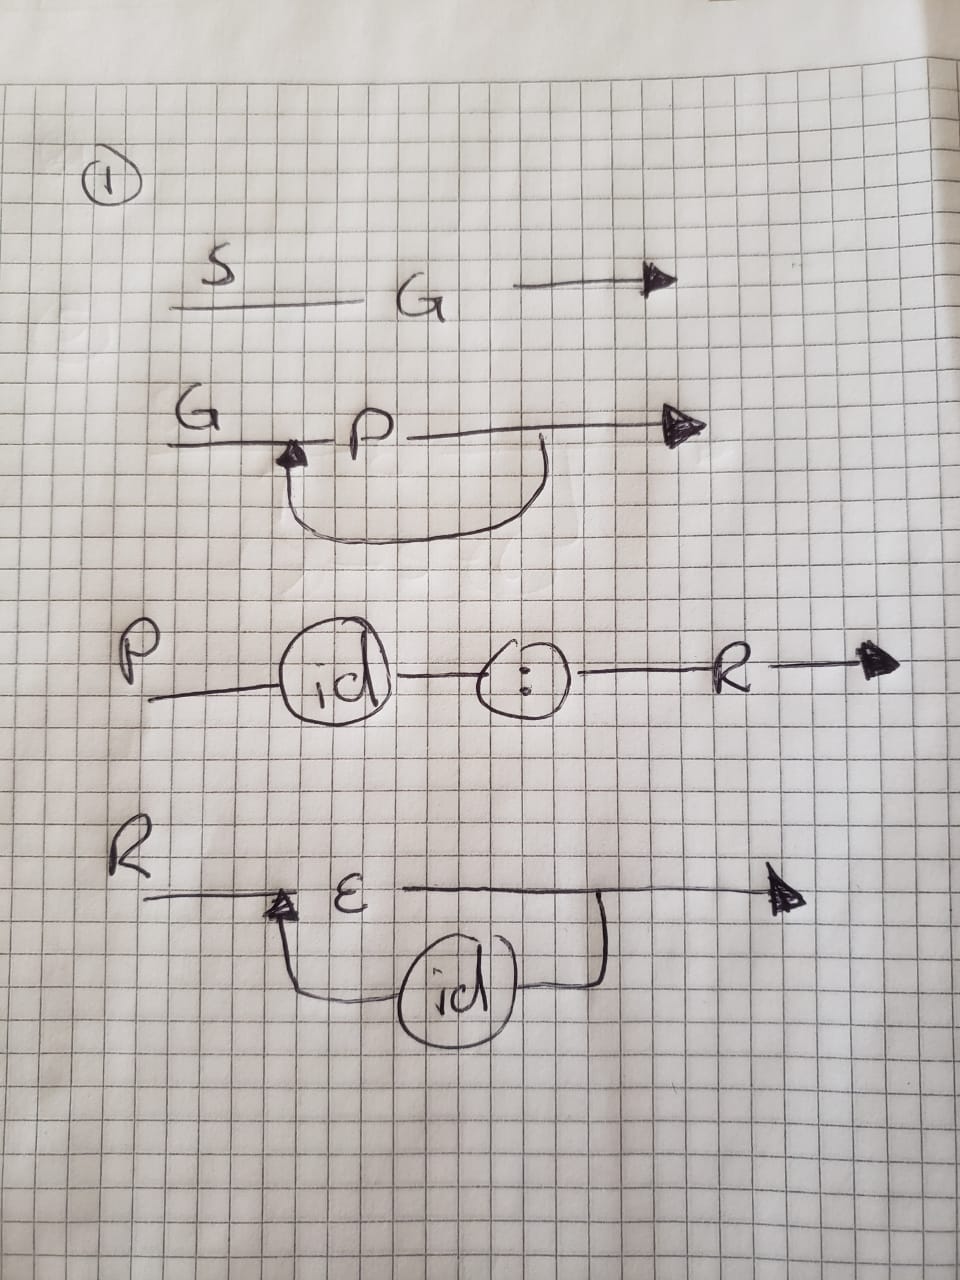 1
S
G
G
P
P
id : R
R
ε
id